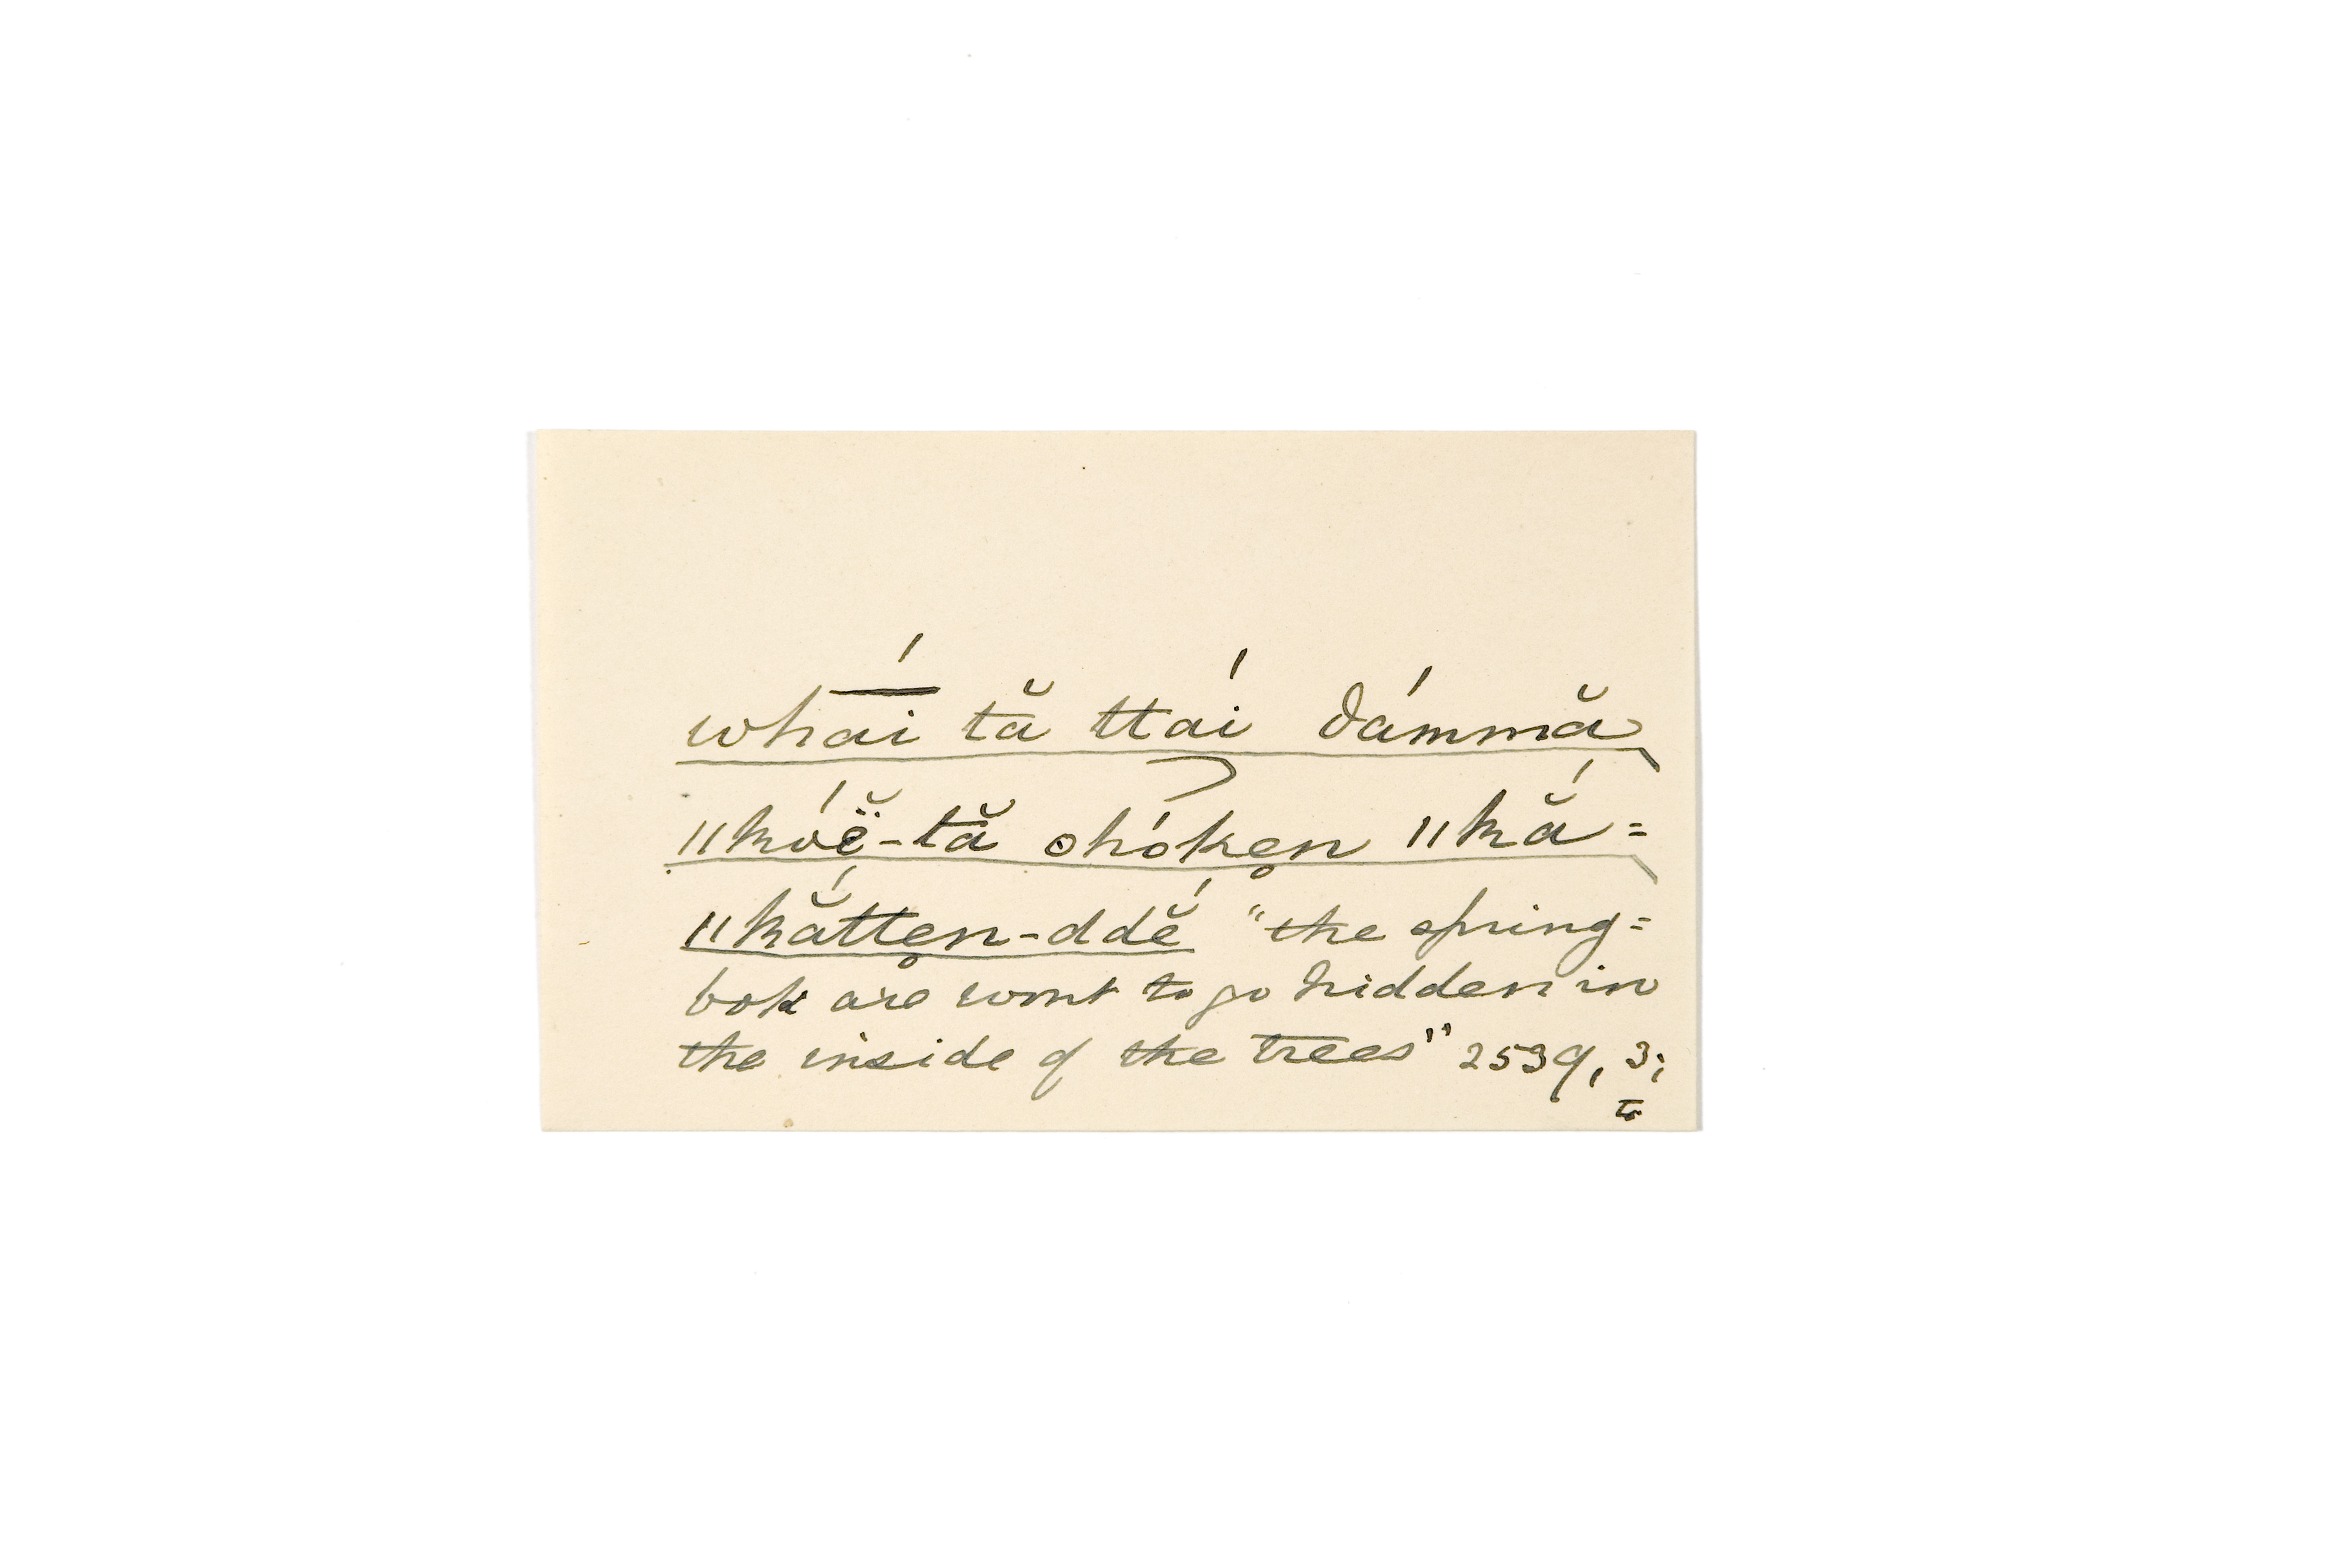 whā́i tă ttaí dámmă
ǁkóë̆-tă ohóken̥ ǁkắ=
ǁkắtten̥-ddĕ́ "the spring=
bok are wont to go hidden in
the inside of the trees" 2539, 3;
to